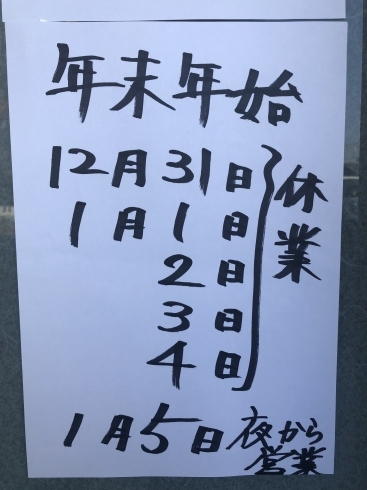 年末年始
12月31日
1月1日
2日
3日
4日
休業
1月5日夜から
営業